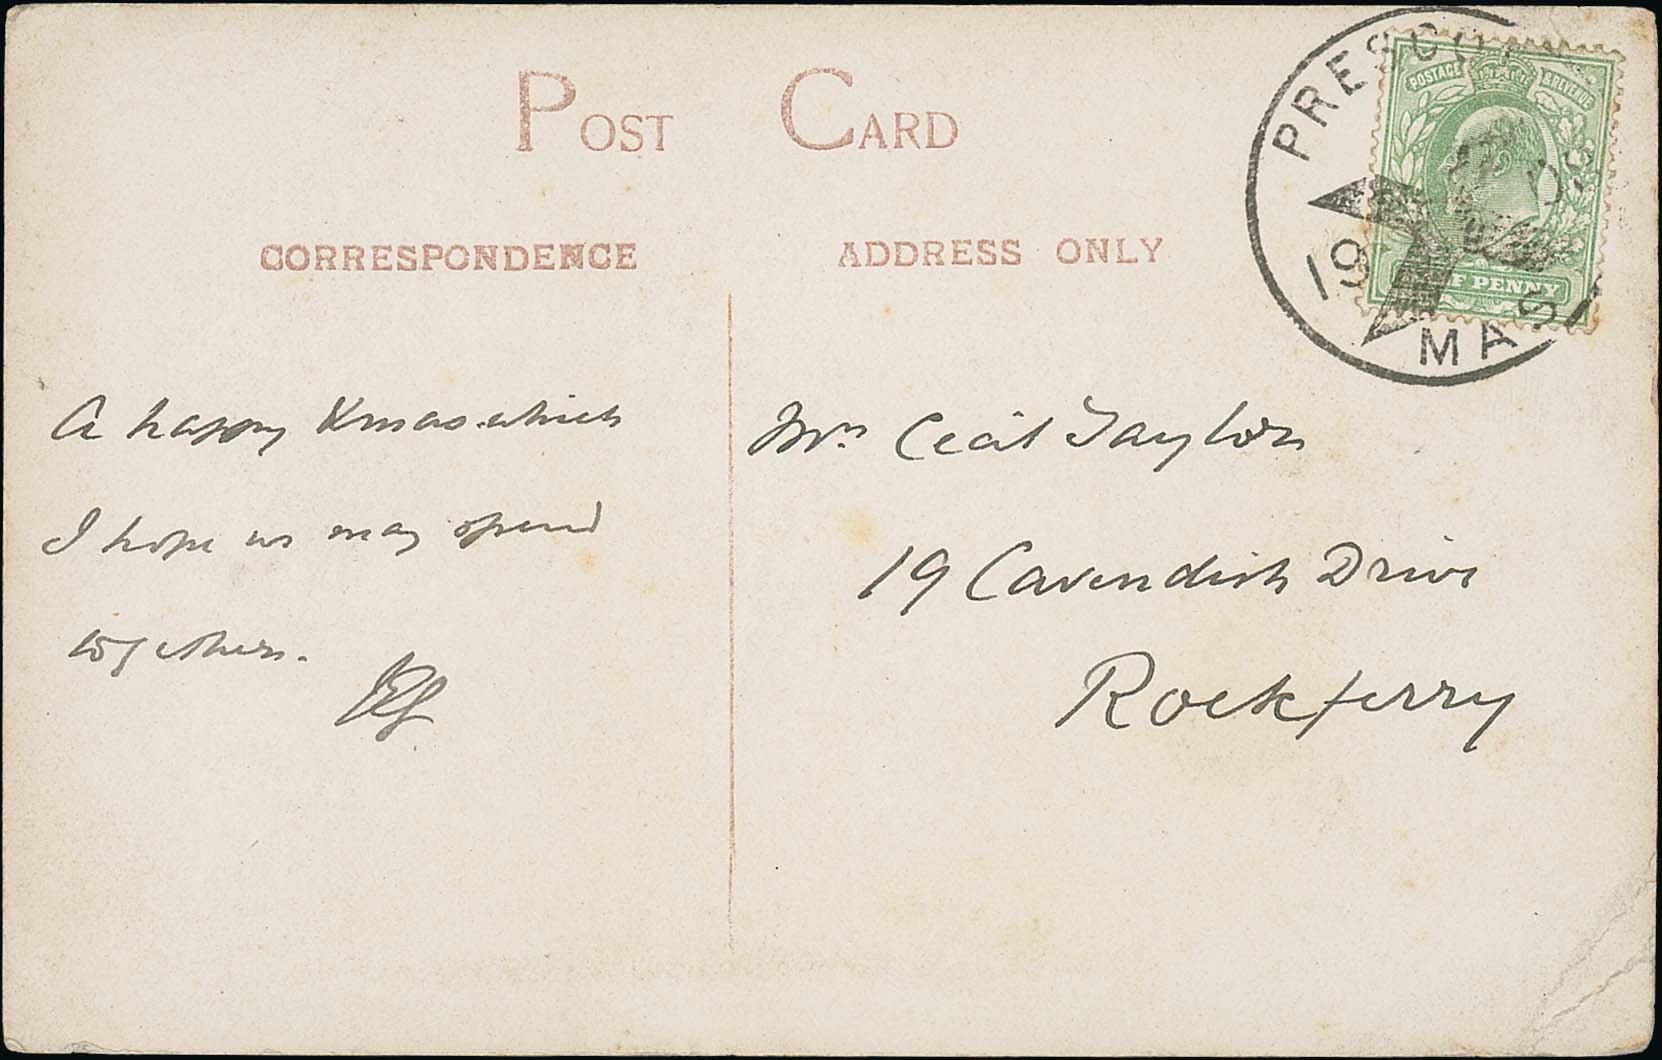 POST CARD
CORRESPONDENCE
ADDRESS ONLY
PRESCOT
19 09
XMAS
POSTAGE & REVENUE
HALF PENNY
A happy Xmas which
I hope we may spend
together.
Mrs Cecil Taylor
19 Cavendish Drive
Rockferry